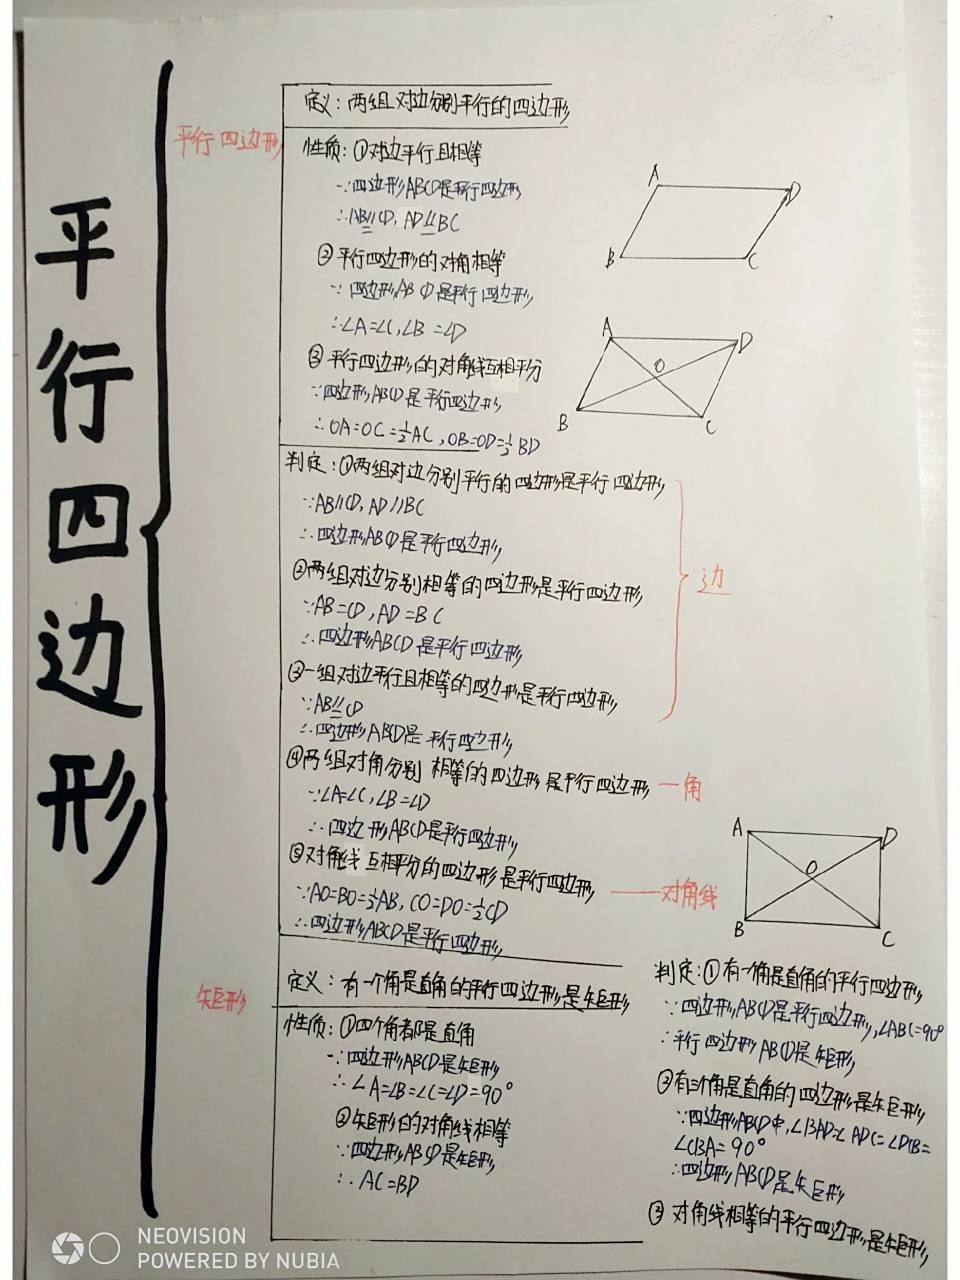 平行四边形
平行四边形
定义：两组对边分别平行的四边形
性质：①对边平行且相等
∵四边形ABCD是平行四边形
∴AB∥CD，AD∥BC
②平行四边形的对角相等
∵四边形ABCD是平行四边形
∴∠A=∠C，∠B=∠D
③平行四边形的对角线互相平分
∵四边形ABCD是平行四边形
∴OA=OC=½AC，OB=OD=½BD
A
D
B
C
A
D
O
B
C
判定：①两组对边分别平行的四边形是平行四边形
∵AB∥CD，AD∥BC
∴四边形ABCD是平行四边形
②两组对边分别相等的四边形是平行四边形
∵AB=CD，AD=BC
∴四边形ABCD是平行四边形
③一组对边平行且相等的四边形是平行四边形
∵AB∥CD
∴四边形ABCD是平行四边形
边
④两组对角分别相等的四边形是平行四边形 —角
∵∠A=∠C，∠B=∠D
∴四边形ABCD是平行四边形
⑤对角线互相平分的四边形是平行四边形 —对角线
∵AO=BO=½AB，CO=DO=½CD
∴四边形ABCD是平行四边形
矩形
定义：有一个角是直角的平行四边形是矩形
性质：①四个角都是直角
∵四边形ABCD是矩形
∴∠A=∠B=∠C=∠D=90°
②矩形的对角线相等
∵四边形ABCD是矩形
∴AC=BD
A
D
O
B
C
判定：①有一角是直角的平行四边形
∵四边形ABCD是平行四边形，∠ABC=90°
∴平行四边形ABCD是矩形
②有三个角是直角的四边形是矩形
∵四边形ABCD中，∠BAD=∠ADC=∠DCB=
∠CBA=90°
∴四边形ABCD是矩形
③对角线相等的平行四边形是矩形
NEOVISION
POWERED BY NUBIA